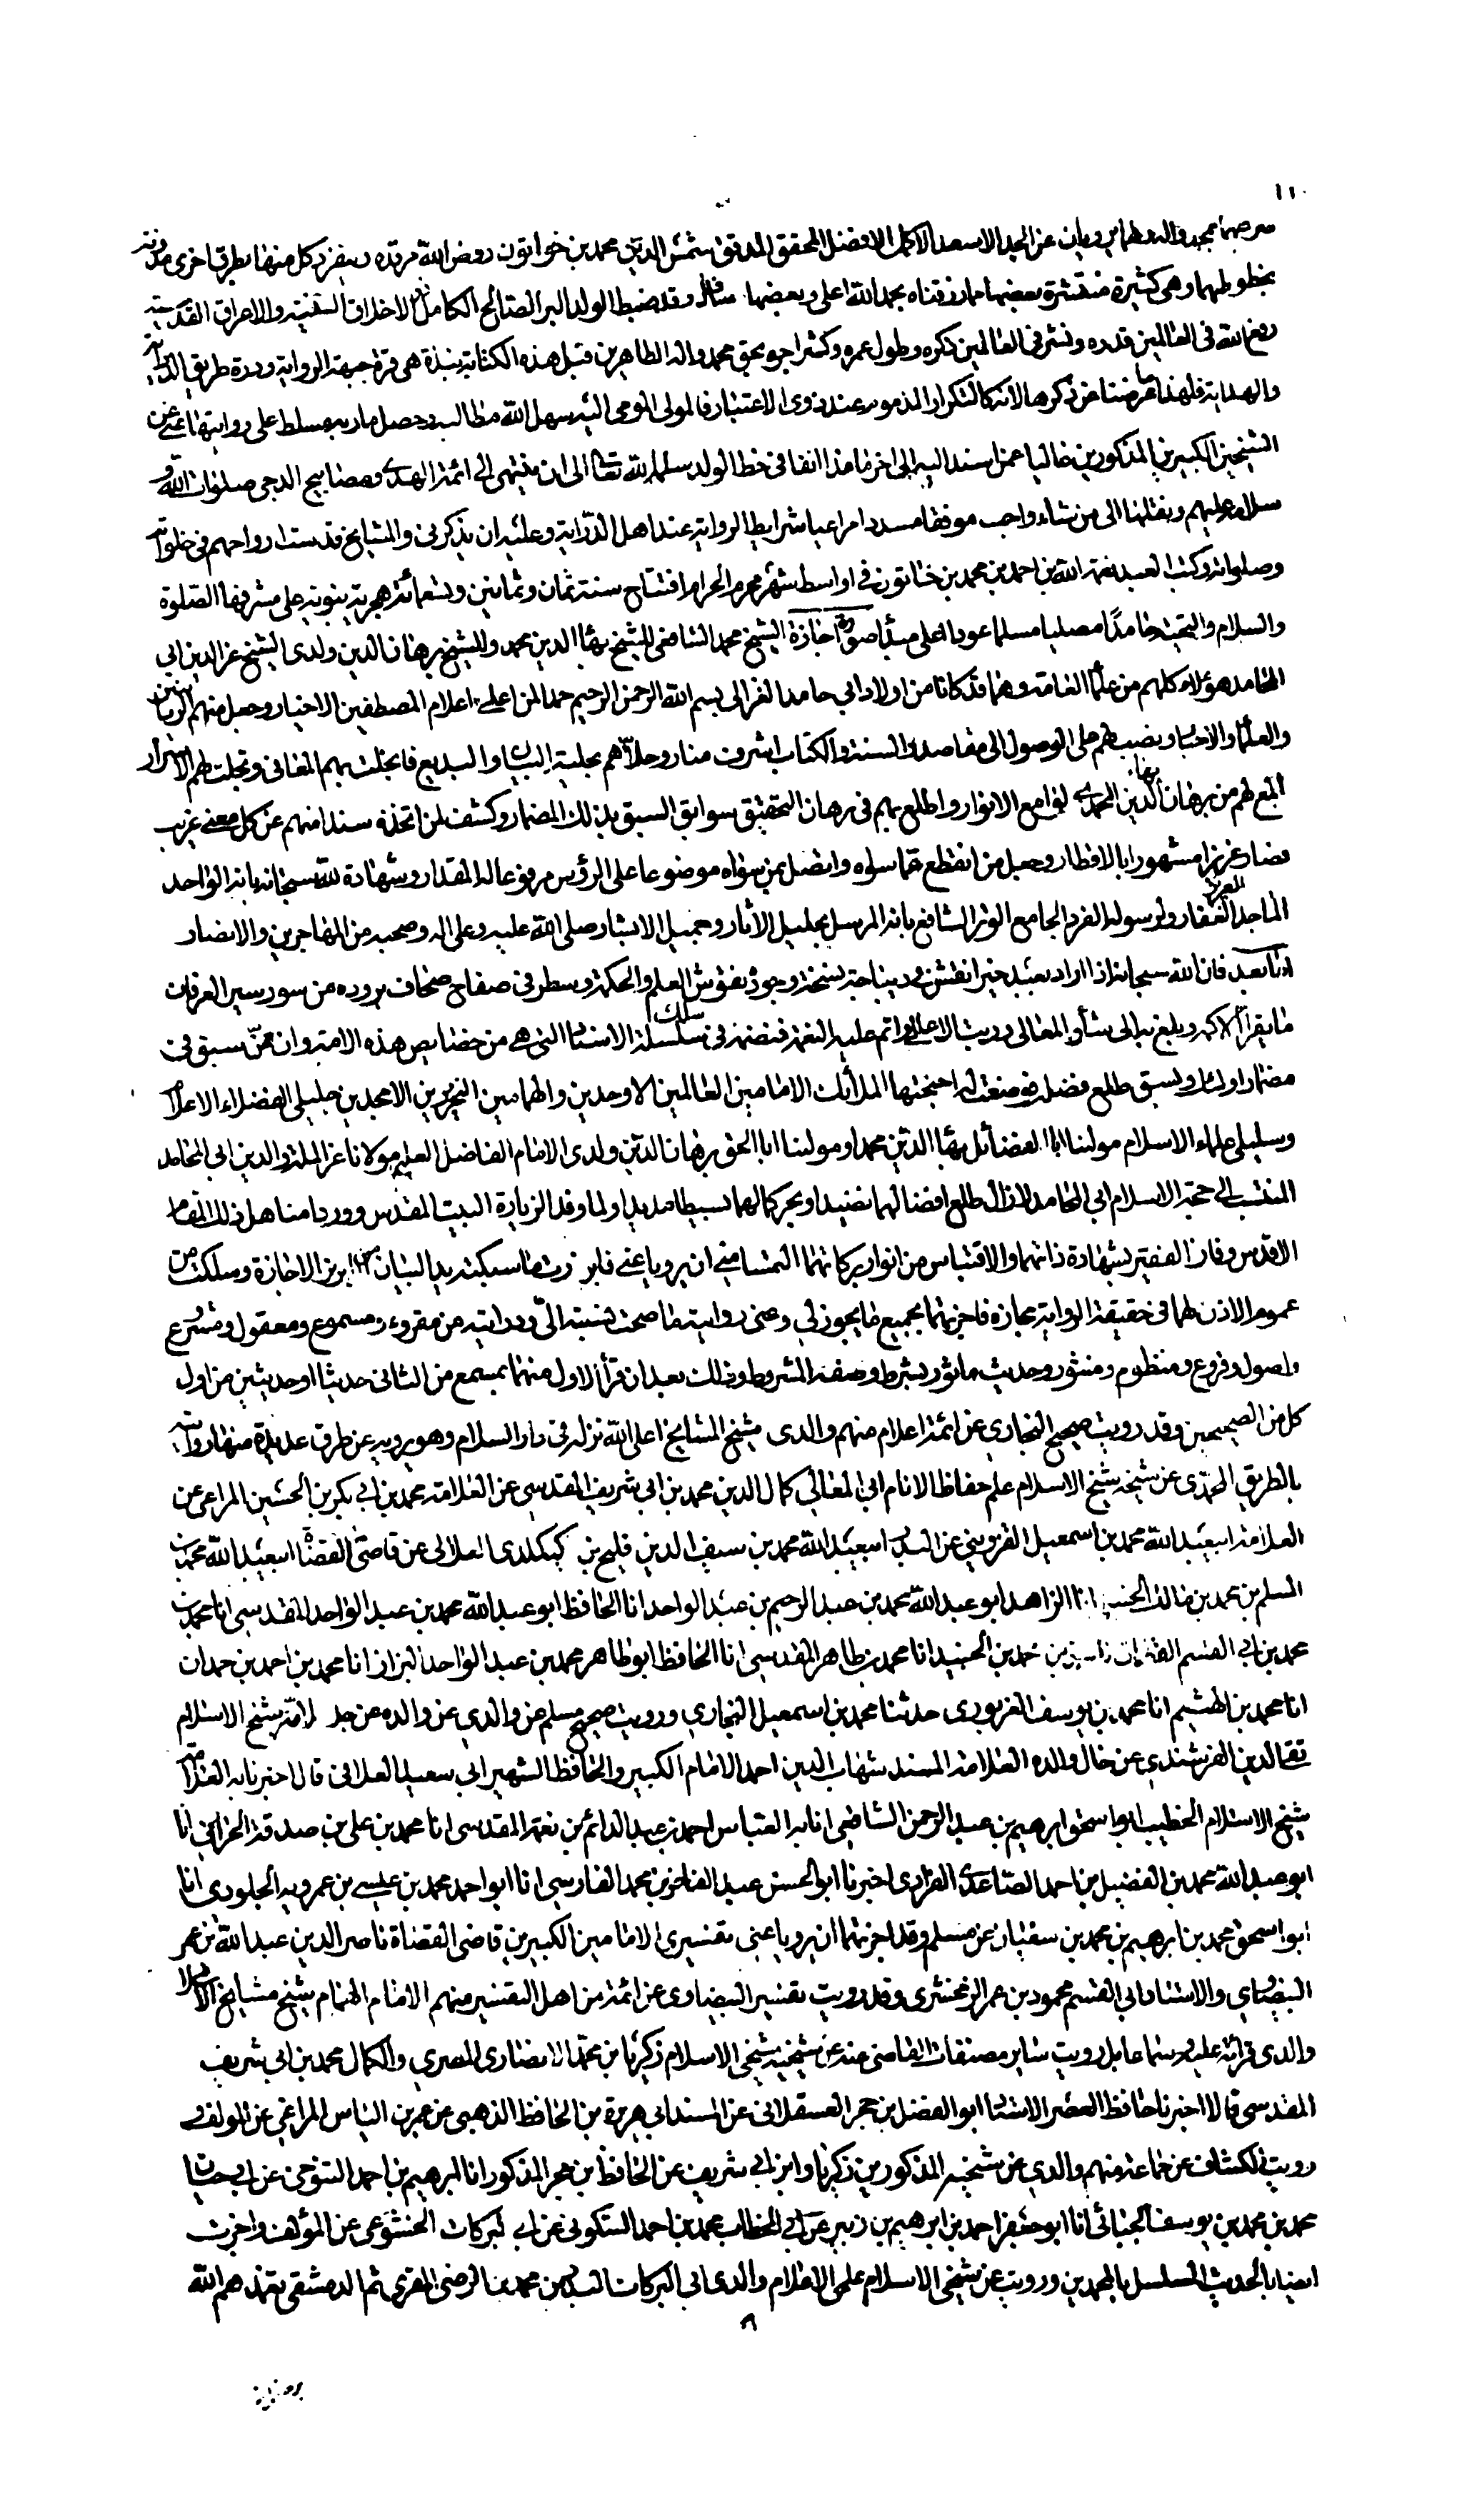 ١١٠
عن الجد الاسعد الاكمل الافضل المحقق المدقق شمس الدين محمد بن خواتون روض الله مرقده وينفرد كل منهما بطرق اخرى مدونة
بخطوطهما وهي كثيرة منتشرة بعضها مما رزقناه بحمد الله اعلى وبعضها وقد ضبط الولد البر الصالح الكامل ذو الاخلاق السنية والاعراق القدسية
رفع الله في العالمين قدره ونشر في العالمين ذكره وطول عمره وكثر اجره بحق محمد واله الطاهرين قبل هذه الكتابة نبذة هي قرة جبهة الرواية ودرة طريق الدراية
والهداية فلهذا ما عرضنا عن ذكرها لانه كالتكرار المذموم عند ذوى الاعتبار فالمولى المومى اليه سهل الله مطالبه وحصل ماربه مسلط على روايتها عني عن
الشيخين الكبيرين المذكورين خاليا عمن اسند اليه الى اخر ما هذا انفا في خط الولد سلمه الله تعالى الى ان ينتهى الى ائمة الهدى ومصابيح الدجى صلوات الله و
سلامه عليهم ونقلها الى من شاء واحب موفقا مسددا مراعيا شرايط الرواية عند اهل الدراية وعليه ان يذكرني والمشايخ قدست ارواحهم في خلواته
وصلواته وكتب العبد نعمة الله بن احمد بن محمد بن خاتون في اواسط شهر محرم الحرام افتتاح سنة ثمان وثمانين وتسعمائة هجرية نبوية على مشرفها الصلوة
والسلام والتحية حامدا مصليا مسلما عودا على صورة اجازة الشيخ محمد الشافعي للشيخ بهاء الدين محمد وللشيخ برهان الدين ولدى الشيخ عز الدين ابي
المحامد هؤلاء كلهم من علماء العامة وهما قد كانا من اولاد ابي حامد الغزالى بسم الله الرحمن الرحيم حمدا لمن اعلى اعلام المصطفين الاخيار وجعل منهم الربانيين
والعلماء والاحبار ونصب لهم على الوصول الى مقاصد السنة والكتاب اشرف منار وحلاهم بحلية البيان والبديع فانجلت بهم المعاني وتجلت لهم الاسرار
المع لهم من برهان بهاء الدين المحمدي لوامع الانوار واطلع بهم في برهان التحقيق سوابق السبق بذلك المضمار وكشف لمن اتخذه سندا منهم عن كل معنى غريب
فصار عزيزا مشهورا بالاقطار وجعل من انقطع عما سواه واتصل بمن سواه موضوعا على الرؤس مرفوعا له المقدار وشهادة لله سبحانه بانه الواحد
الماجد العزيز الغفار ولرسوله الفرد الجامع الوتر الشافع بانه المرسل بجليل الاثار وجميل الابشار صلى الله عليه وعلى اله وصحبه من المهاجرين والانصار
اما بعد فان الله سبحانه اذا اراد بعبد خيرا نقش في ديباجة نسخة وجوده نقوش العلم والحكمة وسطر في صفاح صحاف بروده من سور سير العرفان
ما يقرأه الاكمه ويبلغ به الى شأو المعالي ورتب الاعالي واتم عليه النعمة فنضمه في سلك سلسلة الاسناد التي هي من خصايص هذه الامة وان ممن سبق في
مضمار اولئك ولسبق طلع فضله وضعت له اجنحتها الملائك الامامين العالمين الاوحدين والهمامين النحريرين الامجدين جليلي الفضلاء الاعلام
وسليلى علماء الاسلام مولينا ابا الفضائل بهاء الدين محمدا ومولينا ابا الحق برهان الدين ولدى الامام الفاضل العليم مولانا عز الملة والدين ابي المحامد
المنتسب الى حجة الاسلام ابي المحامد لازال طلع افضالهما نضيدا وبحر كمالهما بسيطا مديدا ولما وفدا لزيارة البيت المقدس ووردا مناهل ذلك المقام
الاقدس وفاز الفقير بشهادة ذاتهما والاقتباس من انوار بركاتهما التمسا مني ان يرويا عني فابرزت ما سبكته يد البيان من ابريز الاجازة وسلكت من
عموم الاذن لهما في حقيقة الرواية مجازه فاجزتهما بجميع ما يجوز لي وعنى روايته مما صحت نسبته الى ودرايته من مقروء ومسموع ومعقول ومشروع
واصول وفروع ومنظوم ومنثور وحديث ماثور بشرطه وصفة المشروط وذلك بعد ان قرأ الاول منهما بمسمع من الثاني حديثا او حديثين من اول
كل من الصحيحين وقد رويت صحيح البخاري عن ائمة اعلام منهم والدى شيخ المشايخ اعلى الله نزله في دار السلام وهو يرويه عن طرق عديدة منها روايته
بالطريق المحمدى عن شيخه شيخ الاسلام علم حفاظ الانام ابي المعالي كمال الدين محمد بن ابي شريف المقدسي عن العلامة محمد بن ابي بكر بن الحسين المراعى عن
العلامة ابي عبد الله محمد بن اسمعيل القزويني عن ابي عبد الله محمد بن سيف الدين قليج بن كيكلدى العلائى عن قاضى القضاة ابي عبد الله محمد بن
المسلم بن محمد بن مالك انا الزاهد ابو عبد الله محمد بن عبد الرحيم بن عبد الواحد انا الحافظ ابو عبد الله محمد بن عبد الواحد المقدسى انا محمد بن
محمد بن ابي القسم محمد بن الجنيد انا محمد بن طاهر المقدسي انا الحافظ ابو طاهر محمد بن عبد الواحد البزاز انا محمد بن احمد بن حمدان
انا محمد بن الهشيم انا محمد بن يوسف الفربورى حدثنا محمد بن اسمعيل البخاري ورويت صحيح مسلم عن والدي عن والده عن جد شيخ الاسلام
تقى الدين القرقشندى عن خال والده العلامة المسند شهاب الدين احمد الامام الكبير والحافظ الشهير ابي سعيد العلائى قال اخبرنا به العلامة
شيخ الاسلام الخطيب ابو اسحق ابرهيم بن عبد الرحمن الشافعى انا به العباس احمد بن عبد الدائم بن نعمة المقدسى انا محمد بن على بن صدقة الحراني انا
ابو عبد الله محمد بن الفضيل بن احمد الصاعدى الفراوى اخبرنا ابو الحسن عبد الفاخر بن محمد الفارسى انا ابو احمد محمد بن عيسى بن عمرويه الجلودى انا
ابو اسحق محمد بن ابرهيم بن محمد بن سفيان عن مسلم وقد اجزتهما ان يرويا عني تفسيري الامامين الكبيرين قاضى القضاة ناصر الدين عبد الله بن عمر
البيضاوي والاستاد ابي القسم محمود بن عمر الزمخشرى وقد رويت تفسير البيضاوى عن ائمة من اهل التفسير منهم الامام الهمام شيخ مشايخ الاسلام
والدى قرائة عليه وسماعا بل رويت ساير مصنفات القاضى عنه عن شيخيه شيخي الاسلام زكريا بن محمد الانصارى المصري والكمال محمد بن ابي شريف
المقدسى قالا اخبرنا حافظ العصر الاستاد ابو الفضل بن حجر العسقلانى عن المسند ابي هريرة بن الحافظ الذهبي عن عمر بن الياس المراغي عن المولف و
رويت الكشاف عن جماعة منهم والدي عن شيخيه المذكورين زكريا وابن ابي شريف عن الحافظ بن حجر المذكور انا ابرهيم بن احمد التنوخى عن ابي حيان
محمد بن محمد بن يوسف الجيائى انا ابو جعفر احمد بن ابرهيم بن زبير عن ابي الخطاب محمد بن احمد السكونى عن ابي البركات الخشوعي عن المؤلف واجزت
ايضا بالحديث المسلسل بالمحمدين ورويته عن شيخي الاسلام علمي الاعلام والدى ابي البركات البدر بن محمد بن الرضي المقري ثم الدمشقى تغمدهم الله